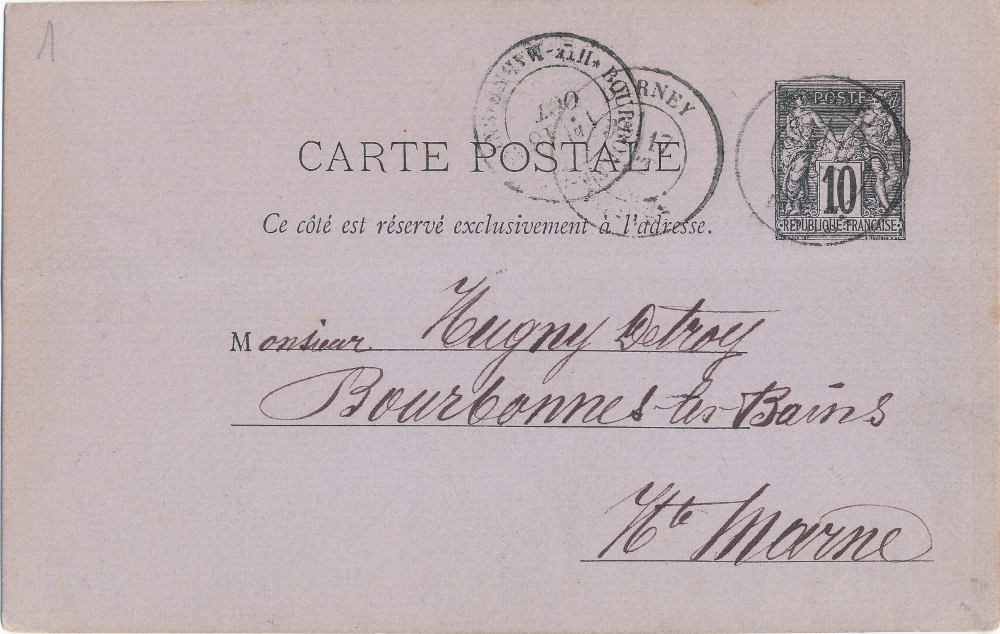 1
HTE-MARNE * BOURBONNE
OCT
RNEY
17
POSTE
10
REPUBLIQUE FRANÇAISE
CARTE POSTALE
Ce côté est réservé exclusivement à l'adresse.
Monsieur Hugny Detroy
Bourbonnes-les-Bains
Hte Marne